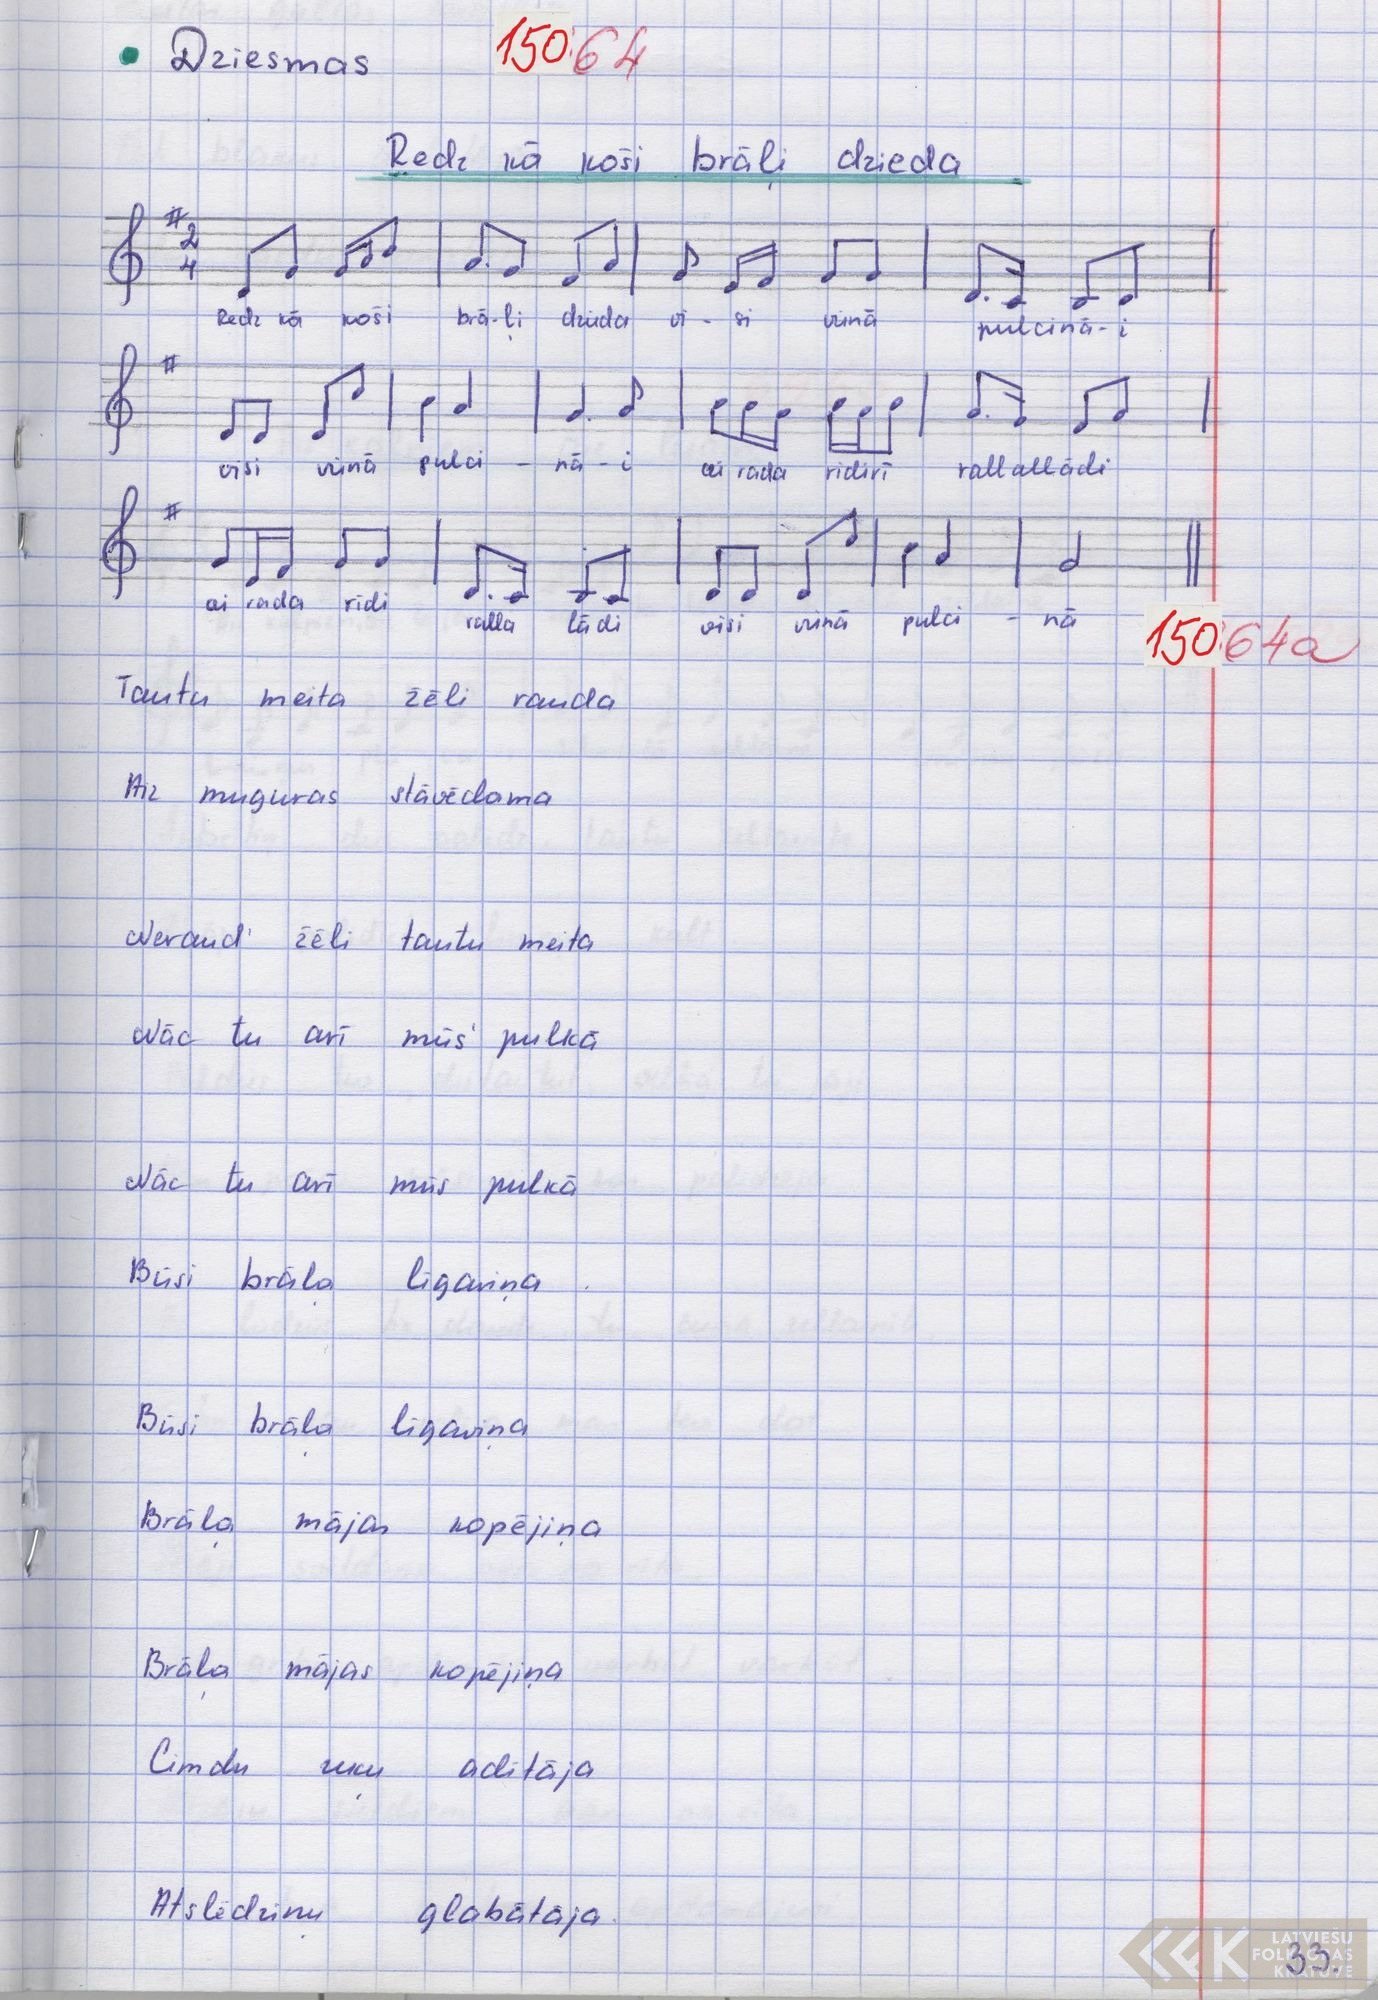 • Dziesmas 150 64
Redz kā koši brāļi dzieda
2
4
Redz kā koši brā-ļi dzieda vi-si vienā pulciņā-i
visi vienā pulci - ņā-i ai rada ridirī rallallādi
ai rada ridi ralla lādi visi vienā pulci - ņā
150 64a
Tautu meita žēli rauda
Aiz muguras stāvēdama
Neraud' žēli tautu meita
Nāc tu arī mūs' pulkā
Nāc tu arī mūs pulkā
Būsi brāļa līgaviņa.
Būsi brāļa līgaviņa
Brāļa mājas kopējiņa
Brāļa mājas kopējiņa
Cimdu zeķu adītāja
Atslēdziņu glabātāja.
LATVIEŠU
FOLKLORAS
KRĀTUVE
33.